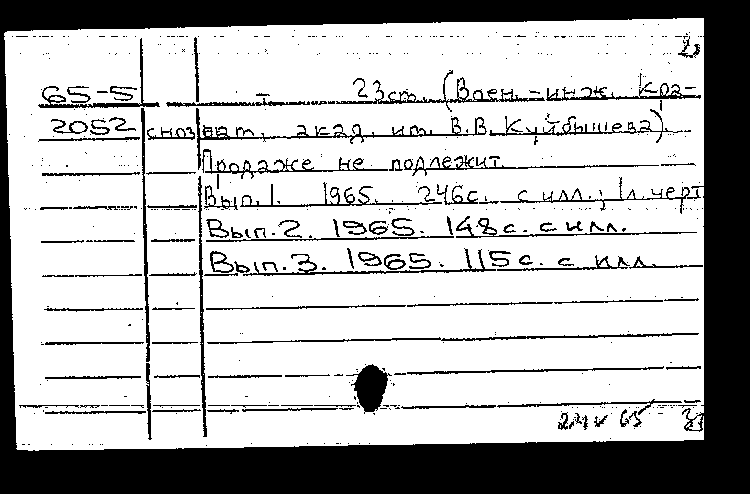 2
65-5 – 23см. (Воен.-инж. Кра-
2052 сноз нат. акад. им. В.В. Куйбышева).
Продаже не подлежит
Вып. 1. 1965. 246с. с илл.; 1л. черт
Вып. 2. 1965. 148с. с илл.
Вып. 3. 1965. 115с. с илл.
65